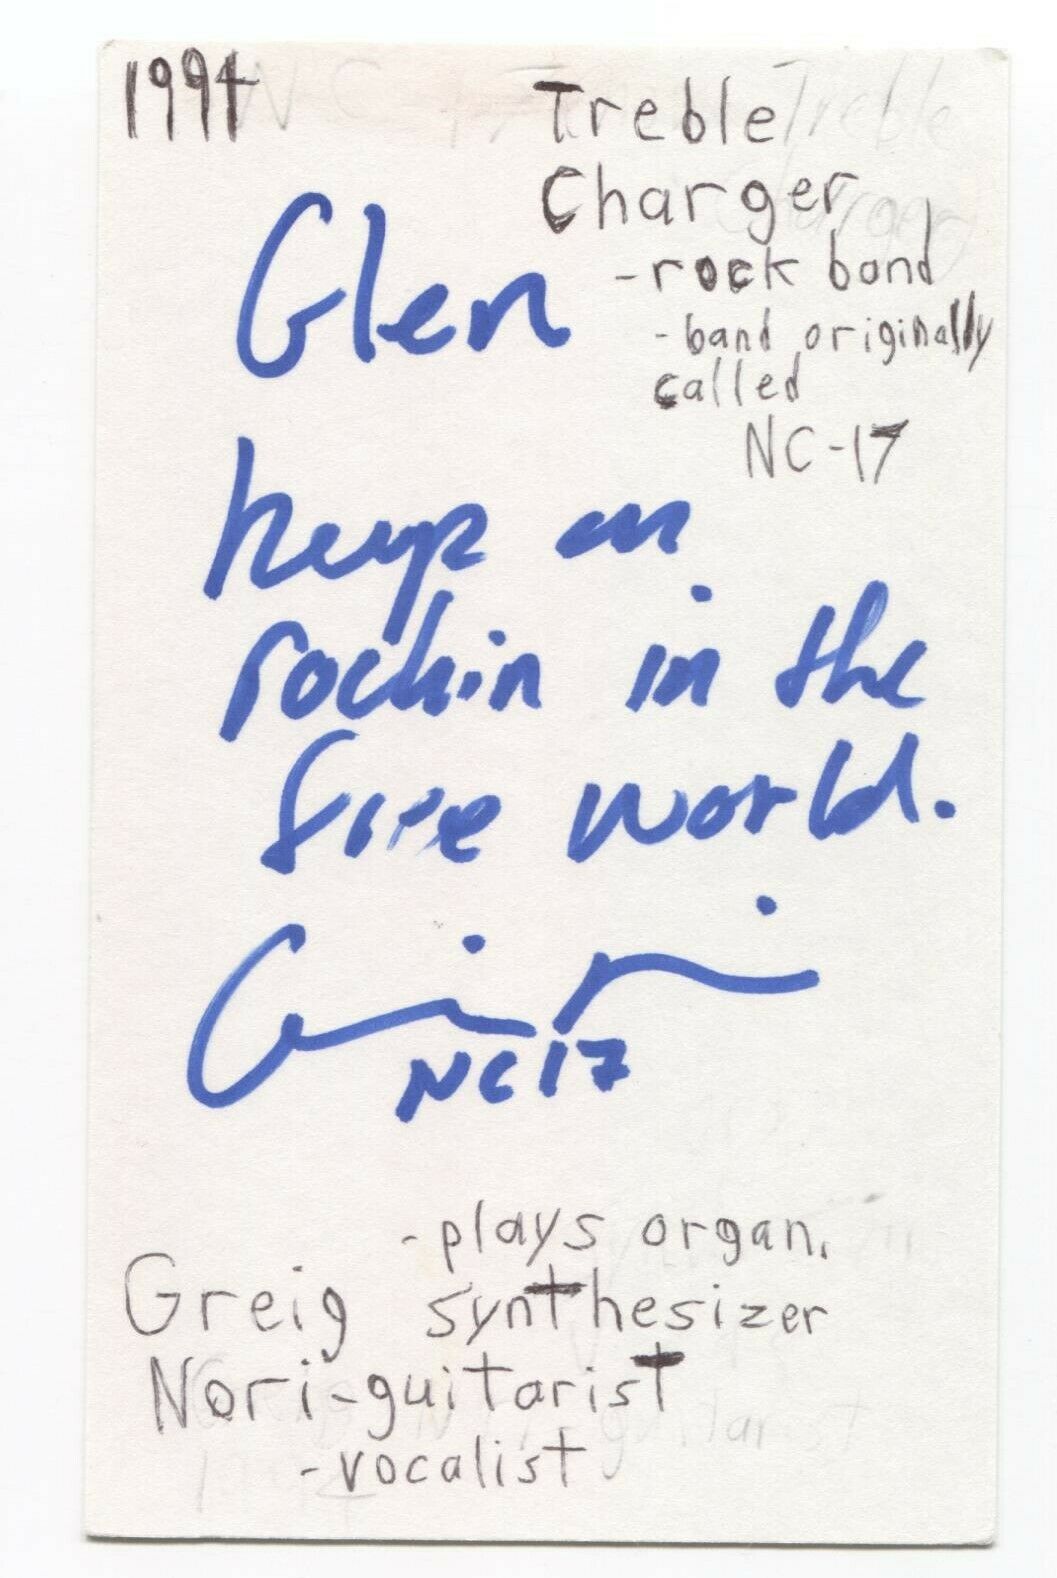 1994
Treble
Charger
-rock band
-band originally
called
NC-17
Glen
keep on
rockin in the
free world.
NC17
-plays organ,
Greig synthesizer
Nori-guitarist
-vocalist